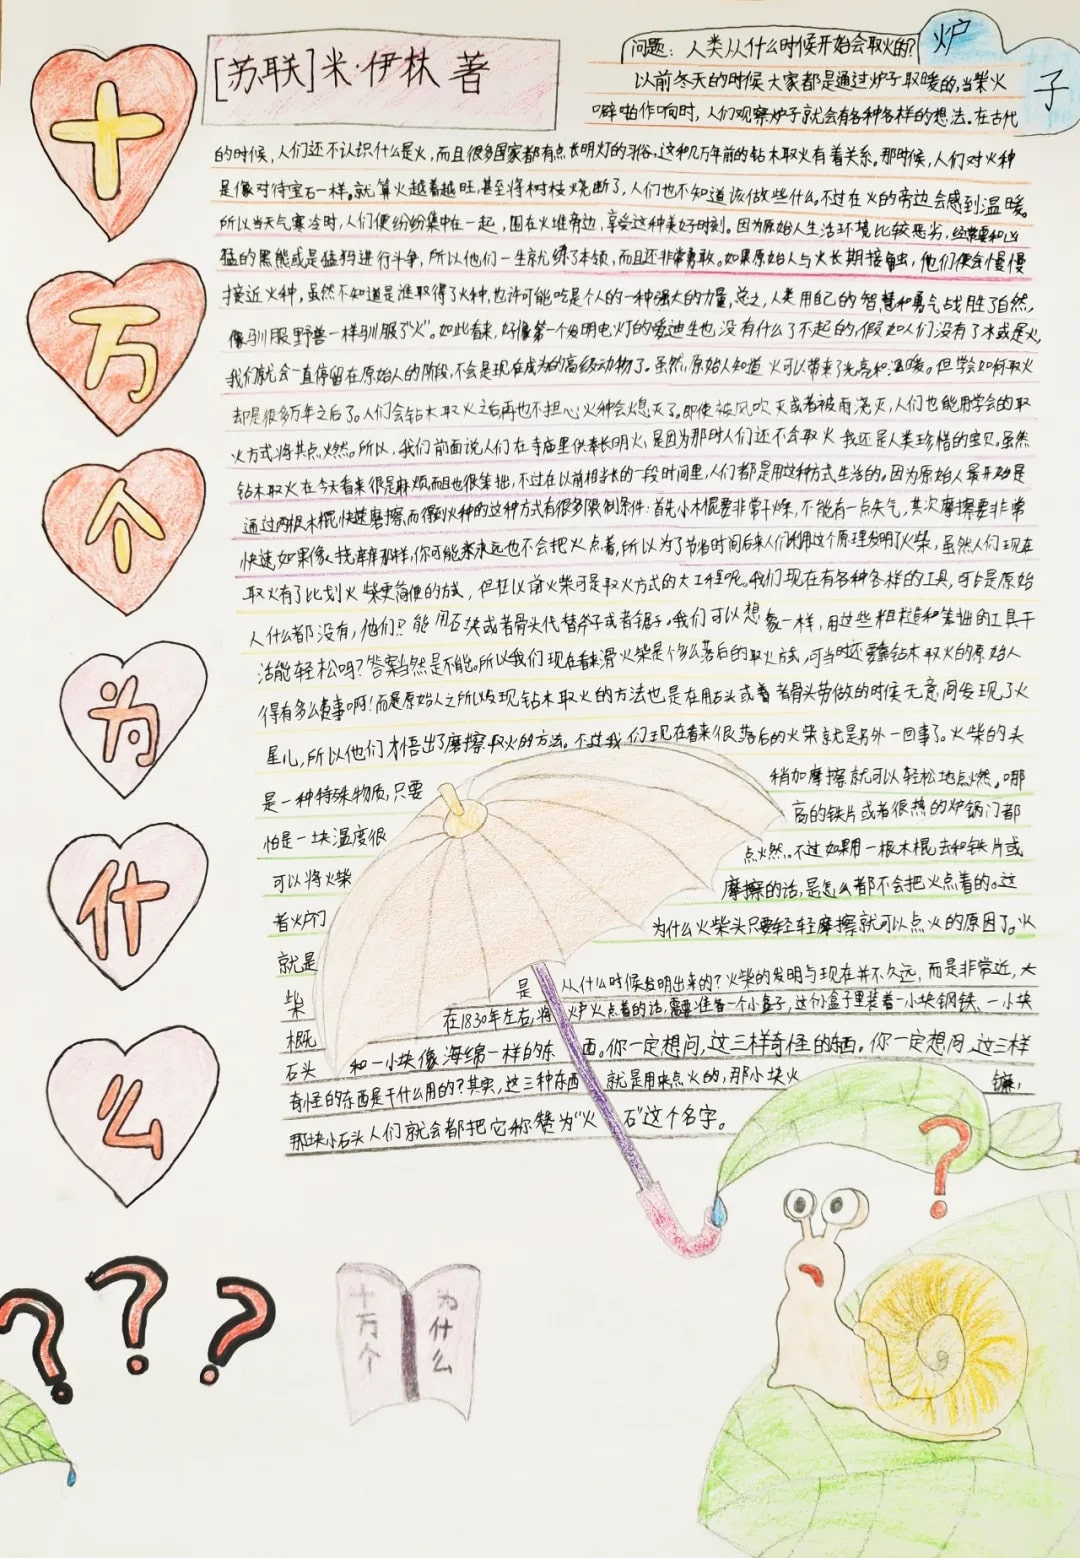 十
万
个
为
什
么
[苏联]米·伊林 著
炉
子
问题：人类从什么时候开始会取火的?
以前冬天的时候大家都是通过炉子取暖的,当柴火
噼啪作响时,人们观察炉子就会有各种各样的想法.在古代
的时候,人们还不认识什么是火,而且很多国家都有点长明灯的习俗,这种几万年前的钻木取火有着关系。那时候,人们对火种
是像对待宝石一样。就算火越着越旺,甚至将树枝烧断了,人们也不知道该做些什么。不过在火的旁边会感到温暖。
所以当天气寒冷时,人们便纷纷集中在一起,围在火堆旁边,享受这种美好时刻。因为原始人生活环境比较恶劣,经常要和凶
猛的黑熊或是猛犸进行斗争,所以他们一生就练了本领,而且还非常勇敢。如果原始人与火长期接触,他们便会慢慢
接近火种,虽然不知道是谁取得了火种,也许可能吃是个人的一种强大的力量,总之,人类用自己的智慧和勇气战胜了自然,
像驯服野兽一样驯服了“火”。如此看来,好像第一个发明电灯的爱迪生也没有什么了不起的,假如人们没有了冰或是火,
我们就会一直停留在原始人的阶段,不会是现在成为的高级动物了。虽然,原始人知道火可以带来了光亮和温暖。但学会如何取火
却是很多万年之后了。人们会钻木取火之后再也不担心火种会熄灭了。即使被风吹灭或者被雨浇灭,人们也能用学会的取
火方式将其点火燃。所以,我们前面说人们在寺庙里供奉长明火,是因为那时人们还不会取火我还是人类珍惜的宝贝。虽然
钻木取火在今天看来很是麻烦而且也很笨拙,不过在以前相当长的一段时间里,人们都是用这种方式生活的。因为原始人最开始是
通过两根木棍快速磨擦而得到火种的这种方式有很多限制条件:首先小木棍要非常干燥,不能有一点失气,其次摩擦要非常
快速,如果像那样,你可能永远也不会把火点着,所以为了节省时间后来人们利用这个原理发明了火柴,虽然人们现在
取火有了比划火柴更简便的方式,但在以前火柴可是取火方式的大工程呢。我们现在有多种各样的工具,可是原始
人什么都没有,他们?能用石块或者骨头代替斧子或者锯子。我们可以想象一样,用这些粗糙和笨拙的工具干
活能轻松吗?答案当然是不能。所以我们现在看来滑火柴是个多么落后的取火方法,可当时还要靠钻木取火的原始人
得有多么费事啊!而是原始人之所以发现钻木取火的方法也是在用石头或着者骨头劳做的时候无意间发现了火
星儿,所以他们才悟出了磨擦取火的方法。不过我们现在看来很落后的火柴就是另外一回事了。火柴的头
是一种特殊物质,只要 稍加摩擦就可以轻松地点燃。哪
怕是一块温度很 高的铁片或者很热的炉锅门都
可以将火柴 点火燃。不过如果用一根木棍去和铁片或
者火炉门 摩擦的话,是怎么都不会把火点着的。这
就是 为什么火柴头只要轻轻摩擦就可以点火的原因了。火
柴 是 从什么时候发明出来的?火柴的发明与现在并不久远,而是非常近,大
概 在1830年左右,将 炉火点着的话,需要准备一个小盒子,这个小盒子里装着一小块钢铁、一小块
石头 和一小块像海绵一样的东 西。你一定想问,这三样奇怪的东西。你一定想问,这三样
奇怪的东西是干什么用的?其实,这三种东西 就是用来点火的,那小块火 镰,
那块小石头人们就会都把它称赞为“火 石”这个名字。
?
? ? ?
十万个
为什么